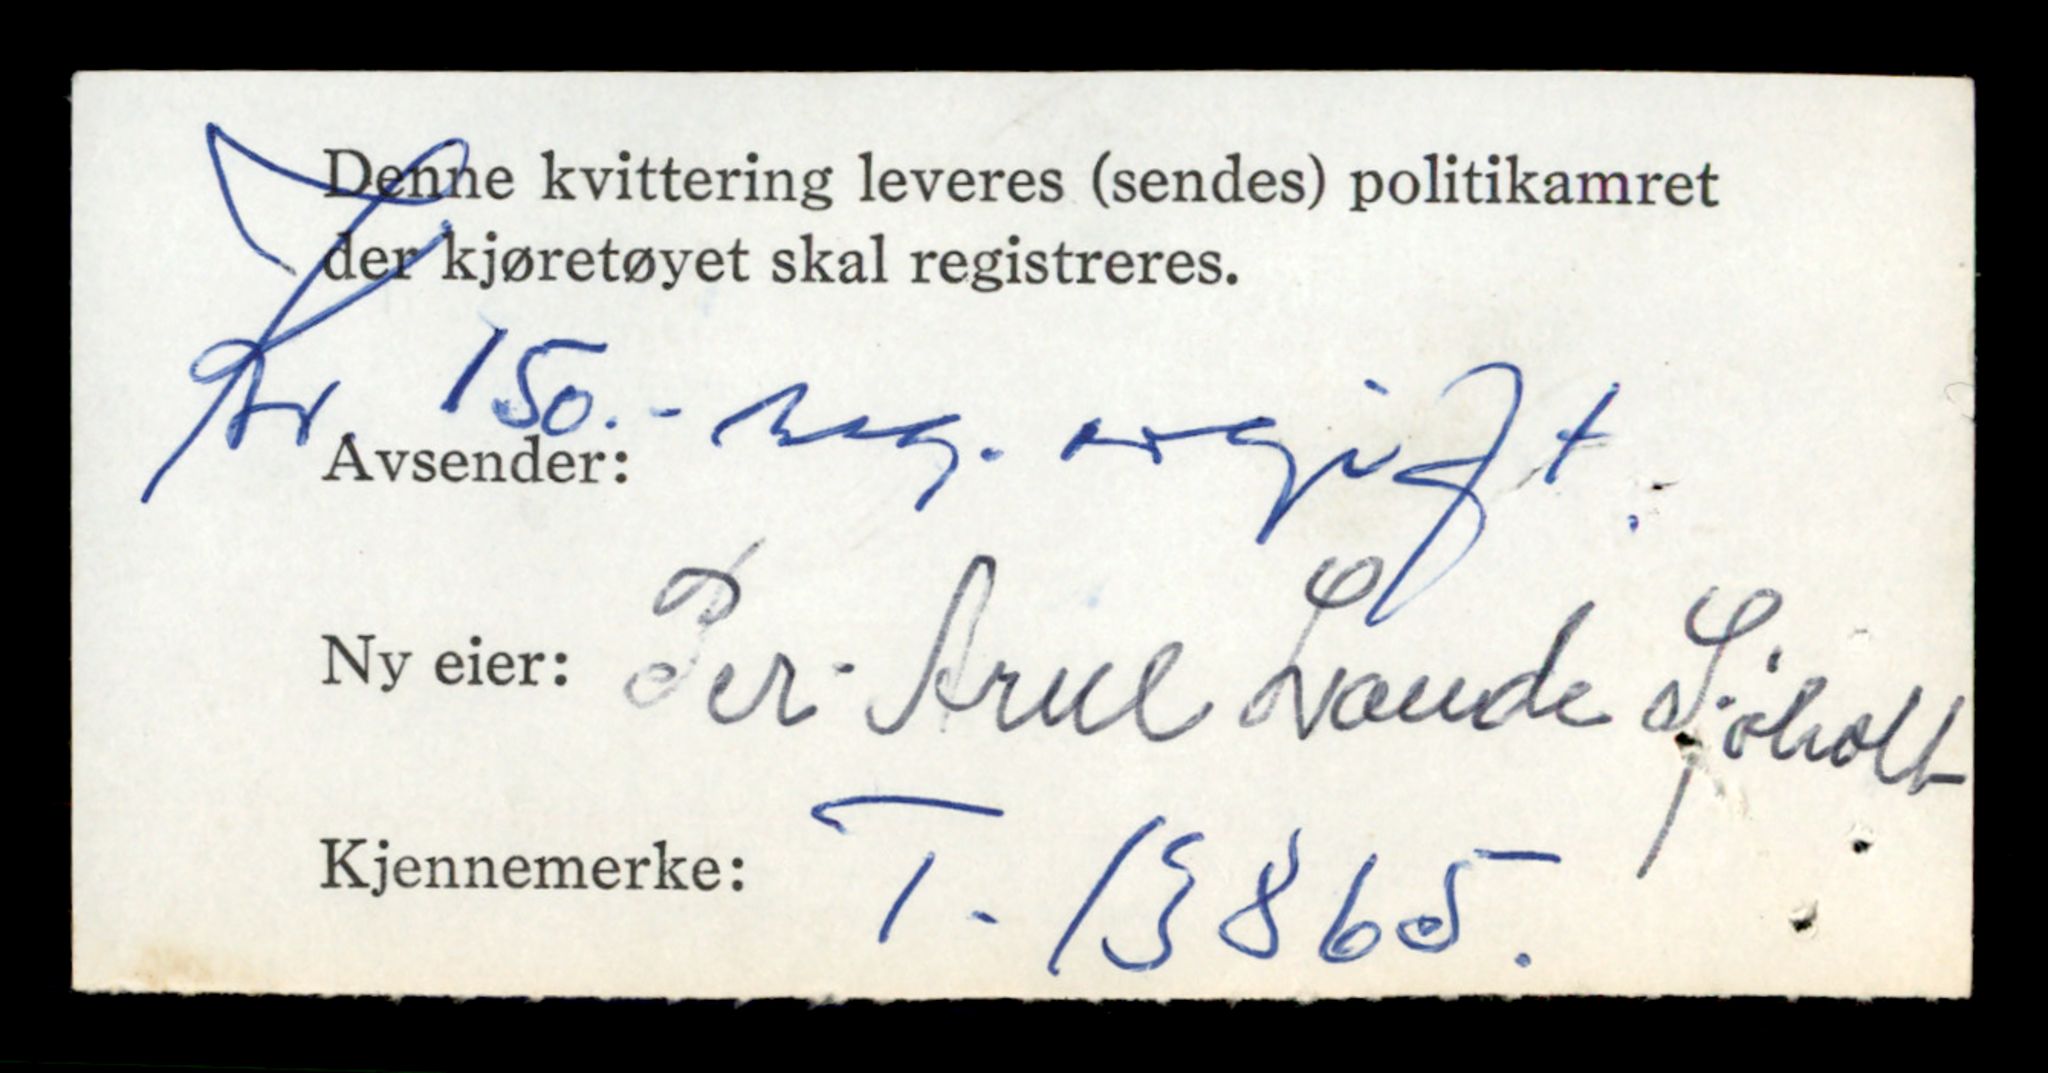 Denne kvittering leveres (sendes) politikamret
der kjøretøyet skal registreres.
Kr. 150.- reg. avgift.
Avsender:
Ny eier: Per-Arne Lande Sjøholt
Kjennemerke: T. 13865.